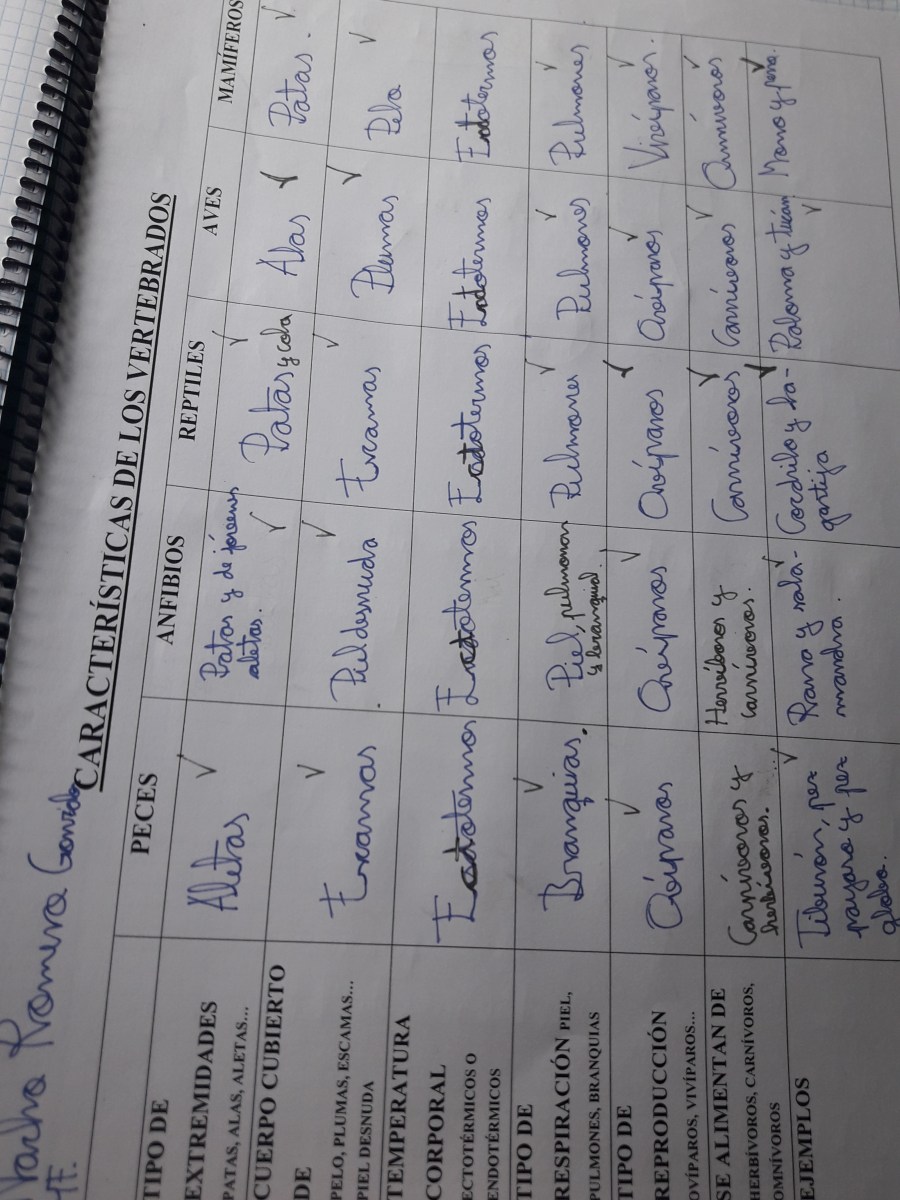 Nacho Romero
CARACTERÍSTICAS DE LOS VERTEBRADOS
TIPO DE
PECES
ANFIBIOS
REPTILES
AVES
MAMÍFEROS
EXTREMIDADES
PATAS, ALAS, ALETAS...
Aletas
Patas y de jóvenes
aletas.
Patas y cola
Alas
Patas.
CUERPO CUBIERTO
DE
PELO, PLUMAS, ESCAMAS...
PIEL DESNUDA
Escamas
Piel desnuda
Escamas
Plumas
Pelo
TEMPERATURA
CORPORAL
ECTOTÉRMICOS O
ENDOTÉRMICOS
Ectotermos
Ectotermos
Ectotermos
Endotermos
Endotermos
TIPO DE
RESPIRACIÓN PIEL,
PULMONES, BRANQUIAS
Branquias.
Piel, pulmones
y branquial.
Pulmones
Pulmones
Pulmones
TIPO DE
REPRODUCCIÓN
OVÍPAROS, VIVÍPAROS...
Ovíparos
Ovíparos
Ovíparos
Ovíparos
Vivíparos.
SE ALIMENTAN DE
HERBÍVOROS, CARNÍVOROS,
OMNIVOROS
Carnívoros y
herbívoros.
Hervíboros y
carnívoros.
Carnívoros
Carnívoros
Omnívoros
EJEMPLOS
Tiburón, pez
payaso y pez
globo.
Rana y sala-
mandra.
Cocodrilo y la-
gartija
Paloma y tucán
Mono y perro.